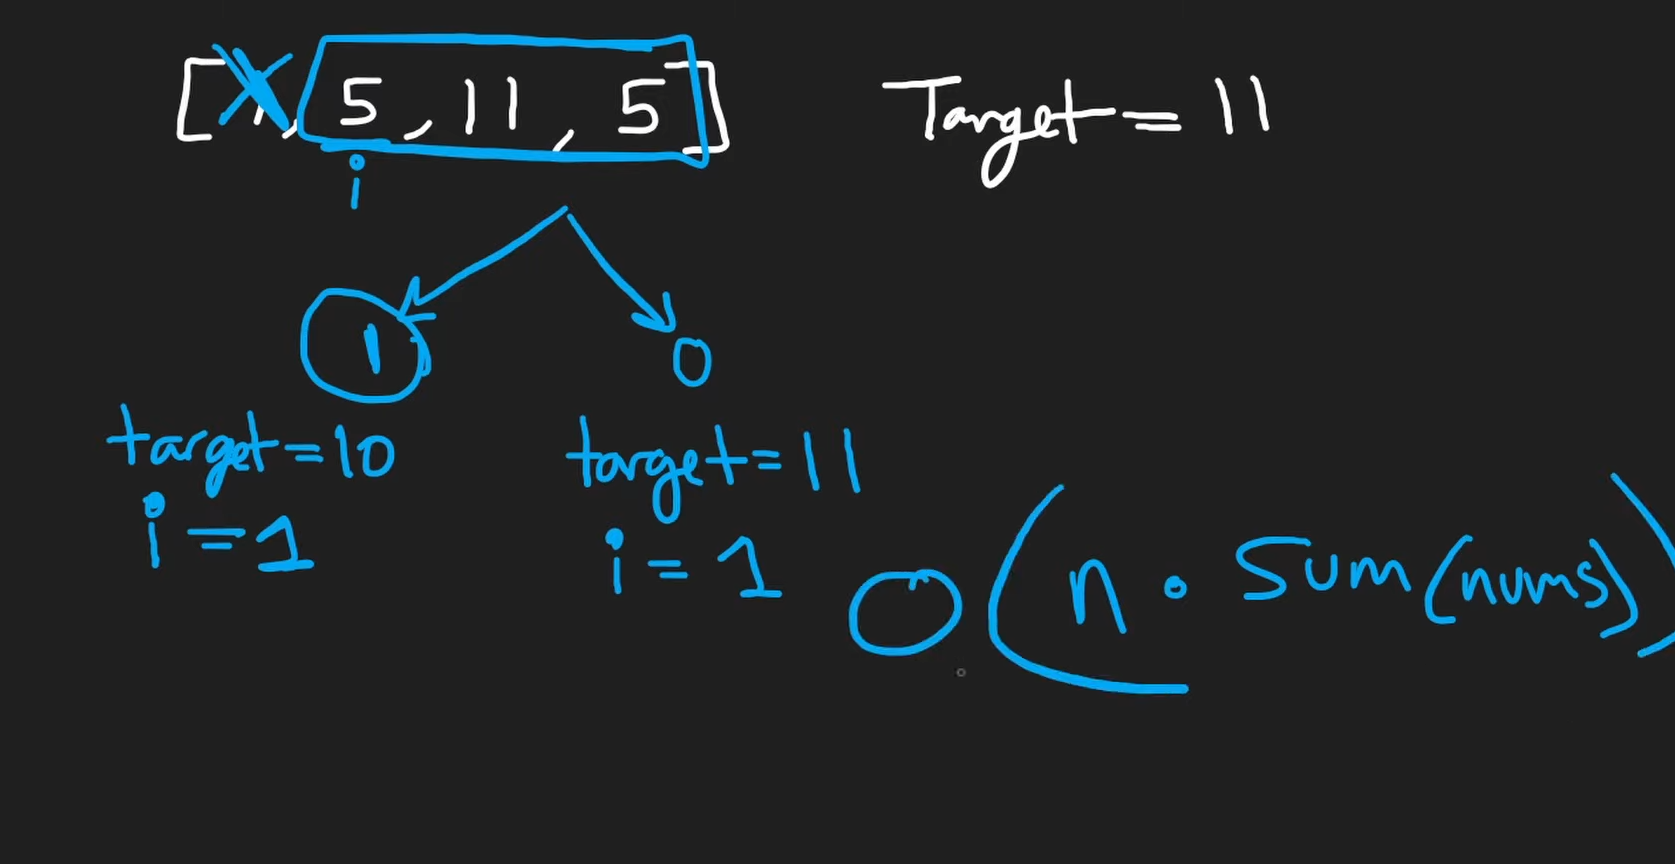 [1, 5, 11, 5] Target = 11
i
1 0
target=10 target=11
i=1 i=1
O(n · Sum(nums))